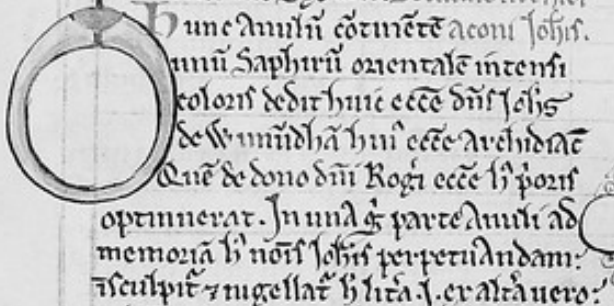 hunc Anulū cōtinētē aconi Joħis.
unū Saphirū orientalē intensi
coloris dedit huic ecc̄e dn̄s Joħs
de Wimūdhā huiꝰ ecc̄e Archidiac̄
Quē de dono dn̄i Rog̃i ecc̄e hꝰ p̃oris
optinuerat. In una g̃ parte Anuli ad
memoriā hꝰ nōis Joħis perpetuandam:
īsculpit᷑ ⁊ nigellat᷑ h̄ lit̃a .I. et alt̃a uero